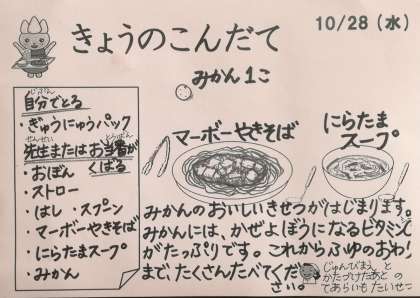 きょうのこんだて
10/28(水)
みかん1こ
自分でとる
・ぎゅうにゅうパック
先生またはお当番が
くばる
・おぼん
・ストロー
・はし スプーン
・マーボーやきそば
・にらたまスープ
・みかん
マーボーやきそば
にらたま
スープ
みかんのおいしいきせつがはじまります。
みかんには、かぜよぼうになるビタミンC
がたっぷりです。これからふゆのおわり
まで、たくさんたべてくだ
さい。
じゅんびまえ と
かたづけたあと の
てあらいも たいせつ